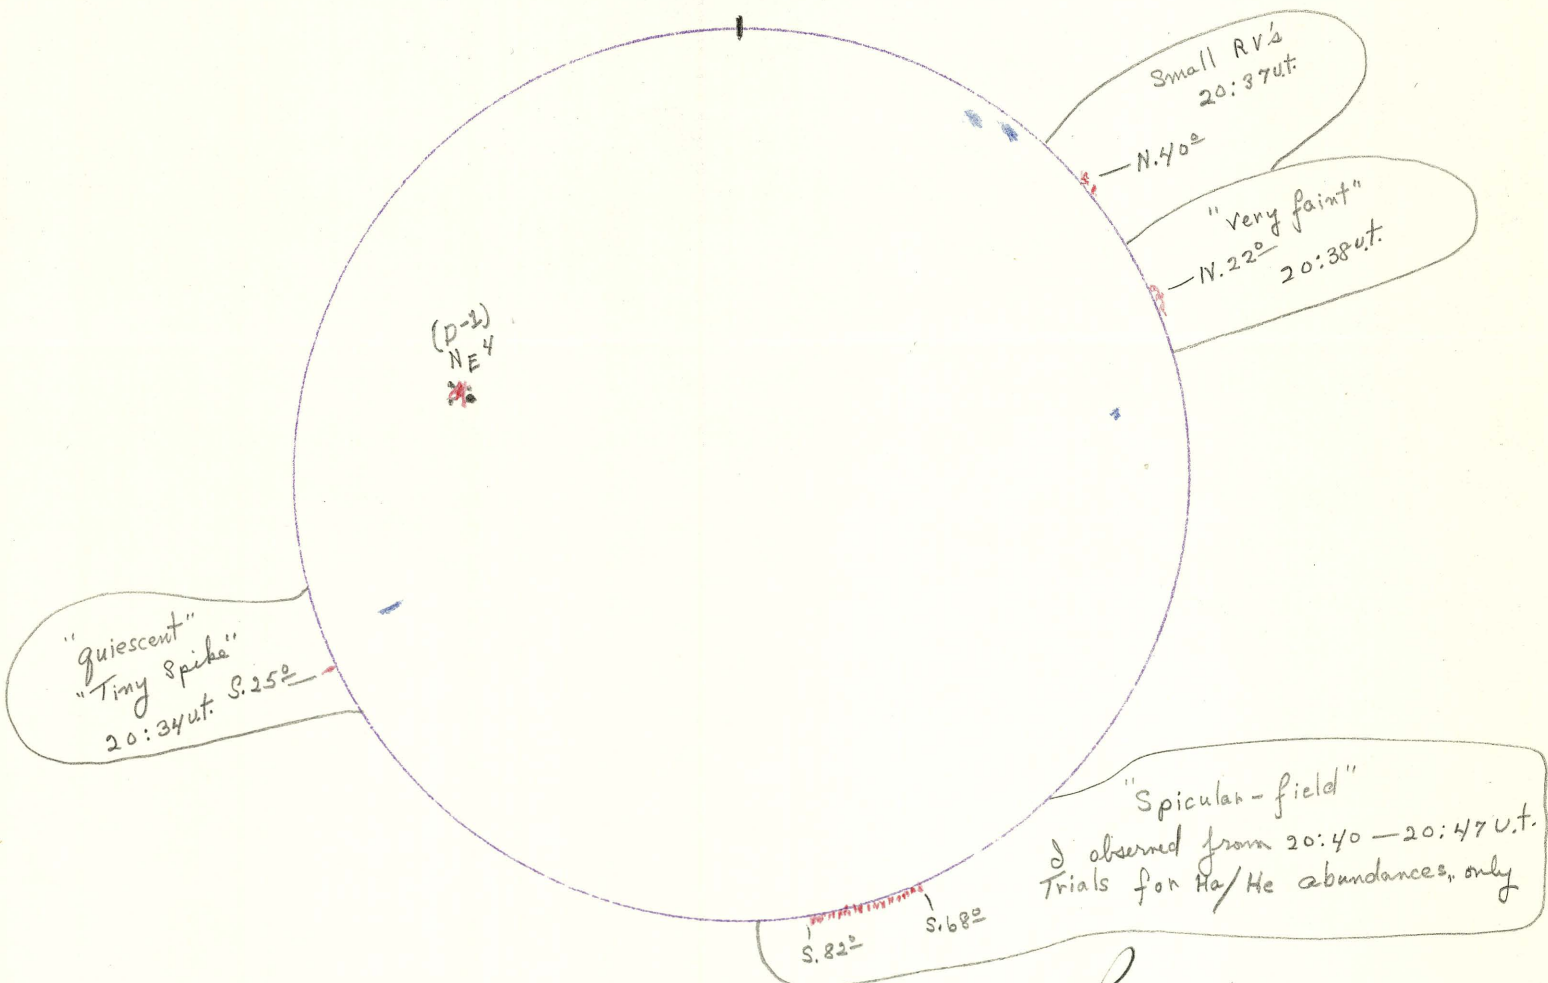 Small RV's
20:37u.t.
N.40º
"very faint"
N.22º
20:38u.t.
(D-1)
NE4
"quiescent"
"Tiny Spike"
20:34u.t. S.25º
"Spicular-field"
I observed from 20:40 — 20:47 U.t.
Trials for Ha/He abundances, only
S.68º
S.82º